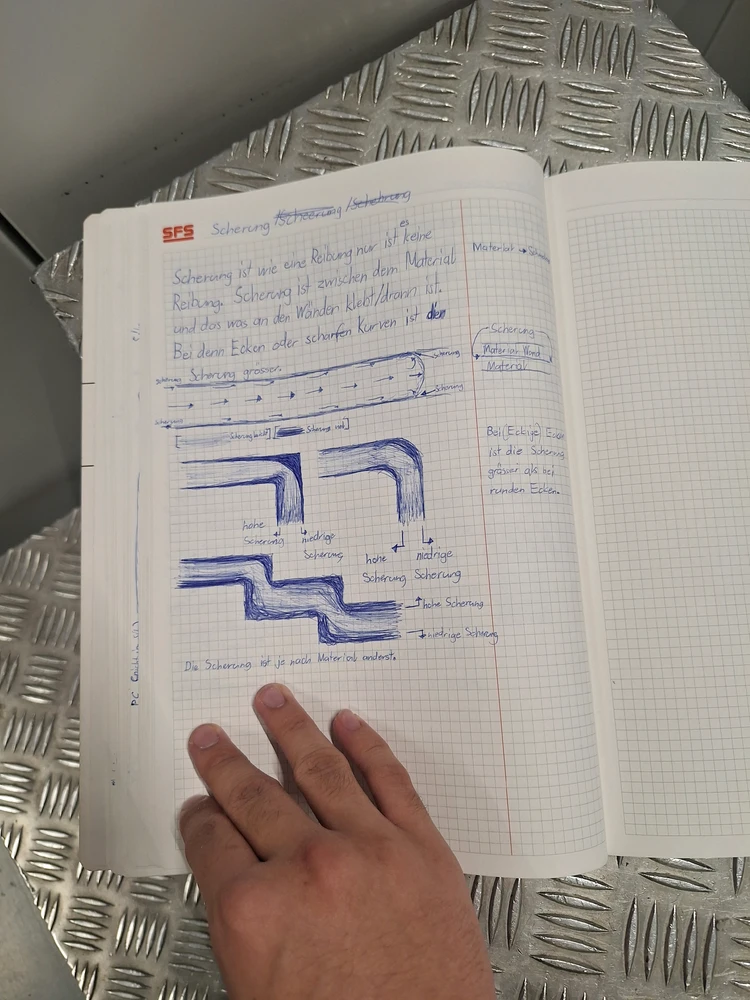 SFS
Scherung Scheerung / Scherung
Scherung ist wie eine Reibung nur ist es keine
Reibung. Scherung ist zwischen dem Material
und das was an den Wänden klebt/drann ist.
Bei denn Ecken oder scharfen Kurven ist
Scherung grösser.
Material →
Scherung
Material Wand
Material
Scherung
Scherung
Scherung
Scherung
Scherung
Scherung viel
Bei (Eckige) Ecken
ist die Scherung
grösser als bei
runden Ecken.
hohe
Scherung
niedrige
Scherung
hohe
Scherung
niedrige
Scherung
hohe Scherung
niedrige Scherung
Die Scherung ist je nach Material anderst.